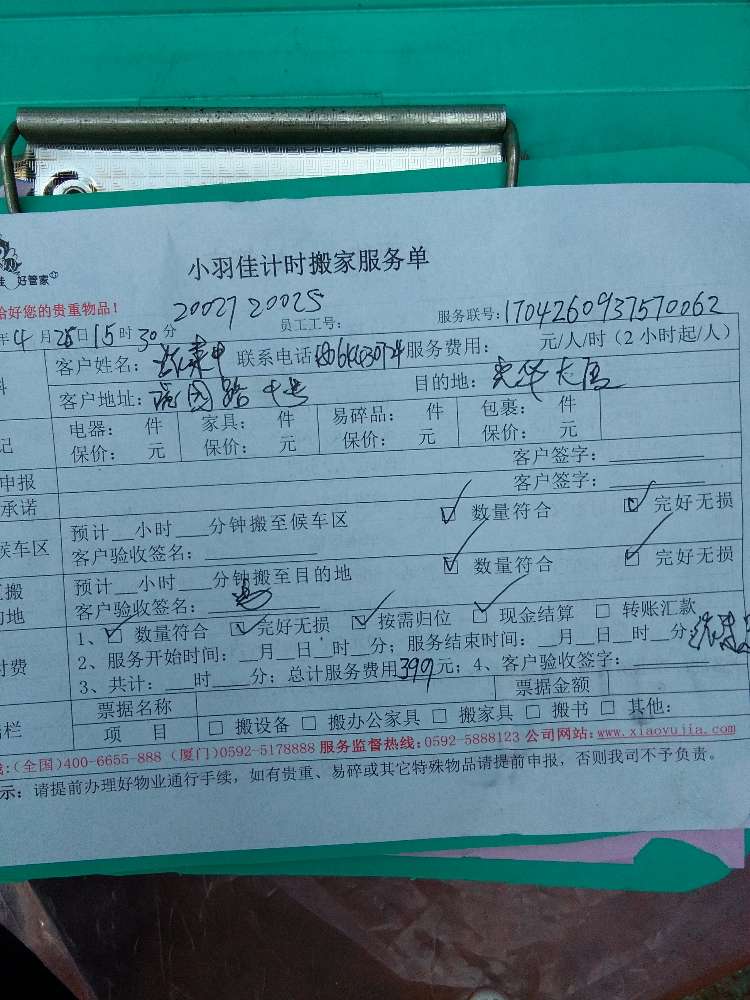 好管家
小羽佳计时搬家服务单
恰好您的贵重物品！
20027 20025
员工工号：
服务联号：1704260937570062
年4月28日15时30分
客户姓名： 联系电话 服务费用： 元/人/时（2小时起/人）
客户地址：虎园路 号 目的地： 大厦
电器： 件 家具： 件 易碎品： 件 包裹： 件
记 保价： 元 保价： 元 保价： 元 保价： 元
申报 客户签字：
承诺 客户签字：
预计__小时___分钟搬至候车区 ☑ 数量符合 ☑ 完好无损
候车区 客户验收签名：
搬 预计__小时___分钟搬至目的地 ☑ 数量符合 ☑ 完好无损
的地 客户验收签名：
1、☑ 数量符合 ☑ 完好无损 ☑ 按需归位 ☑ 现金结算 □ 转账汇款
2、服务开始时间：__月__日__时__分；服务结束时间：__月__日__时__分；
付费 3、共计：___时___分；总计服务费用399元；4、客户验收签字：
票据名称 票据金额
栏 项 目 □ 搬设备 □ 搬办公家具 □ 搬家具 □ 搬书 □ 其他：
线:(全国)400-6655-888 (厦门)0592-5178888 服务监督热线:0592-5888123 公司网站:www.xiaoyujia.com
示：请提前办理好物业通行手续，如有贵重、易碎或其它特殊物品请提前申报，否则我司不予负责。